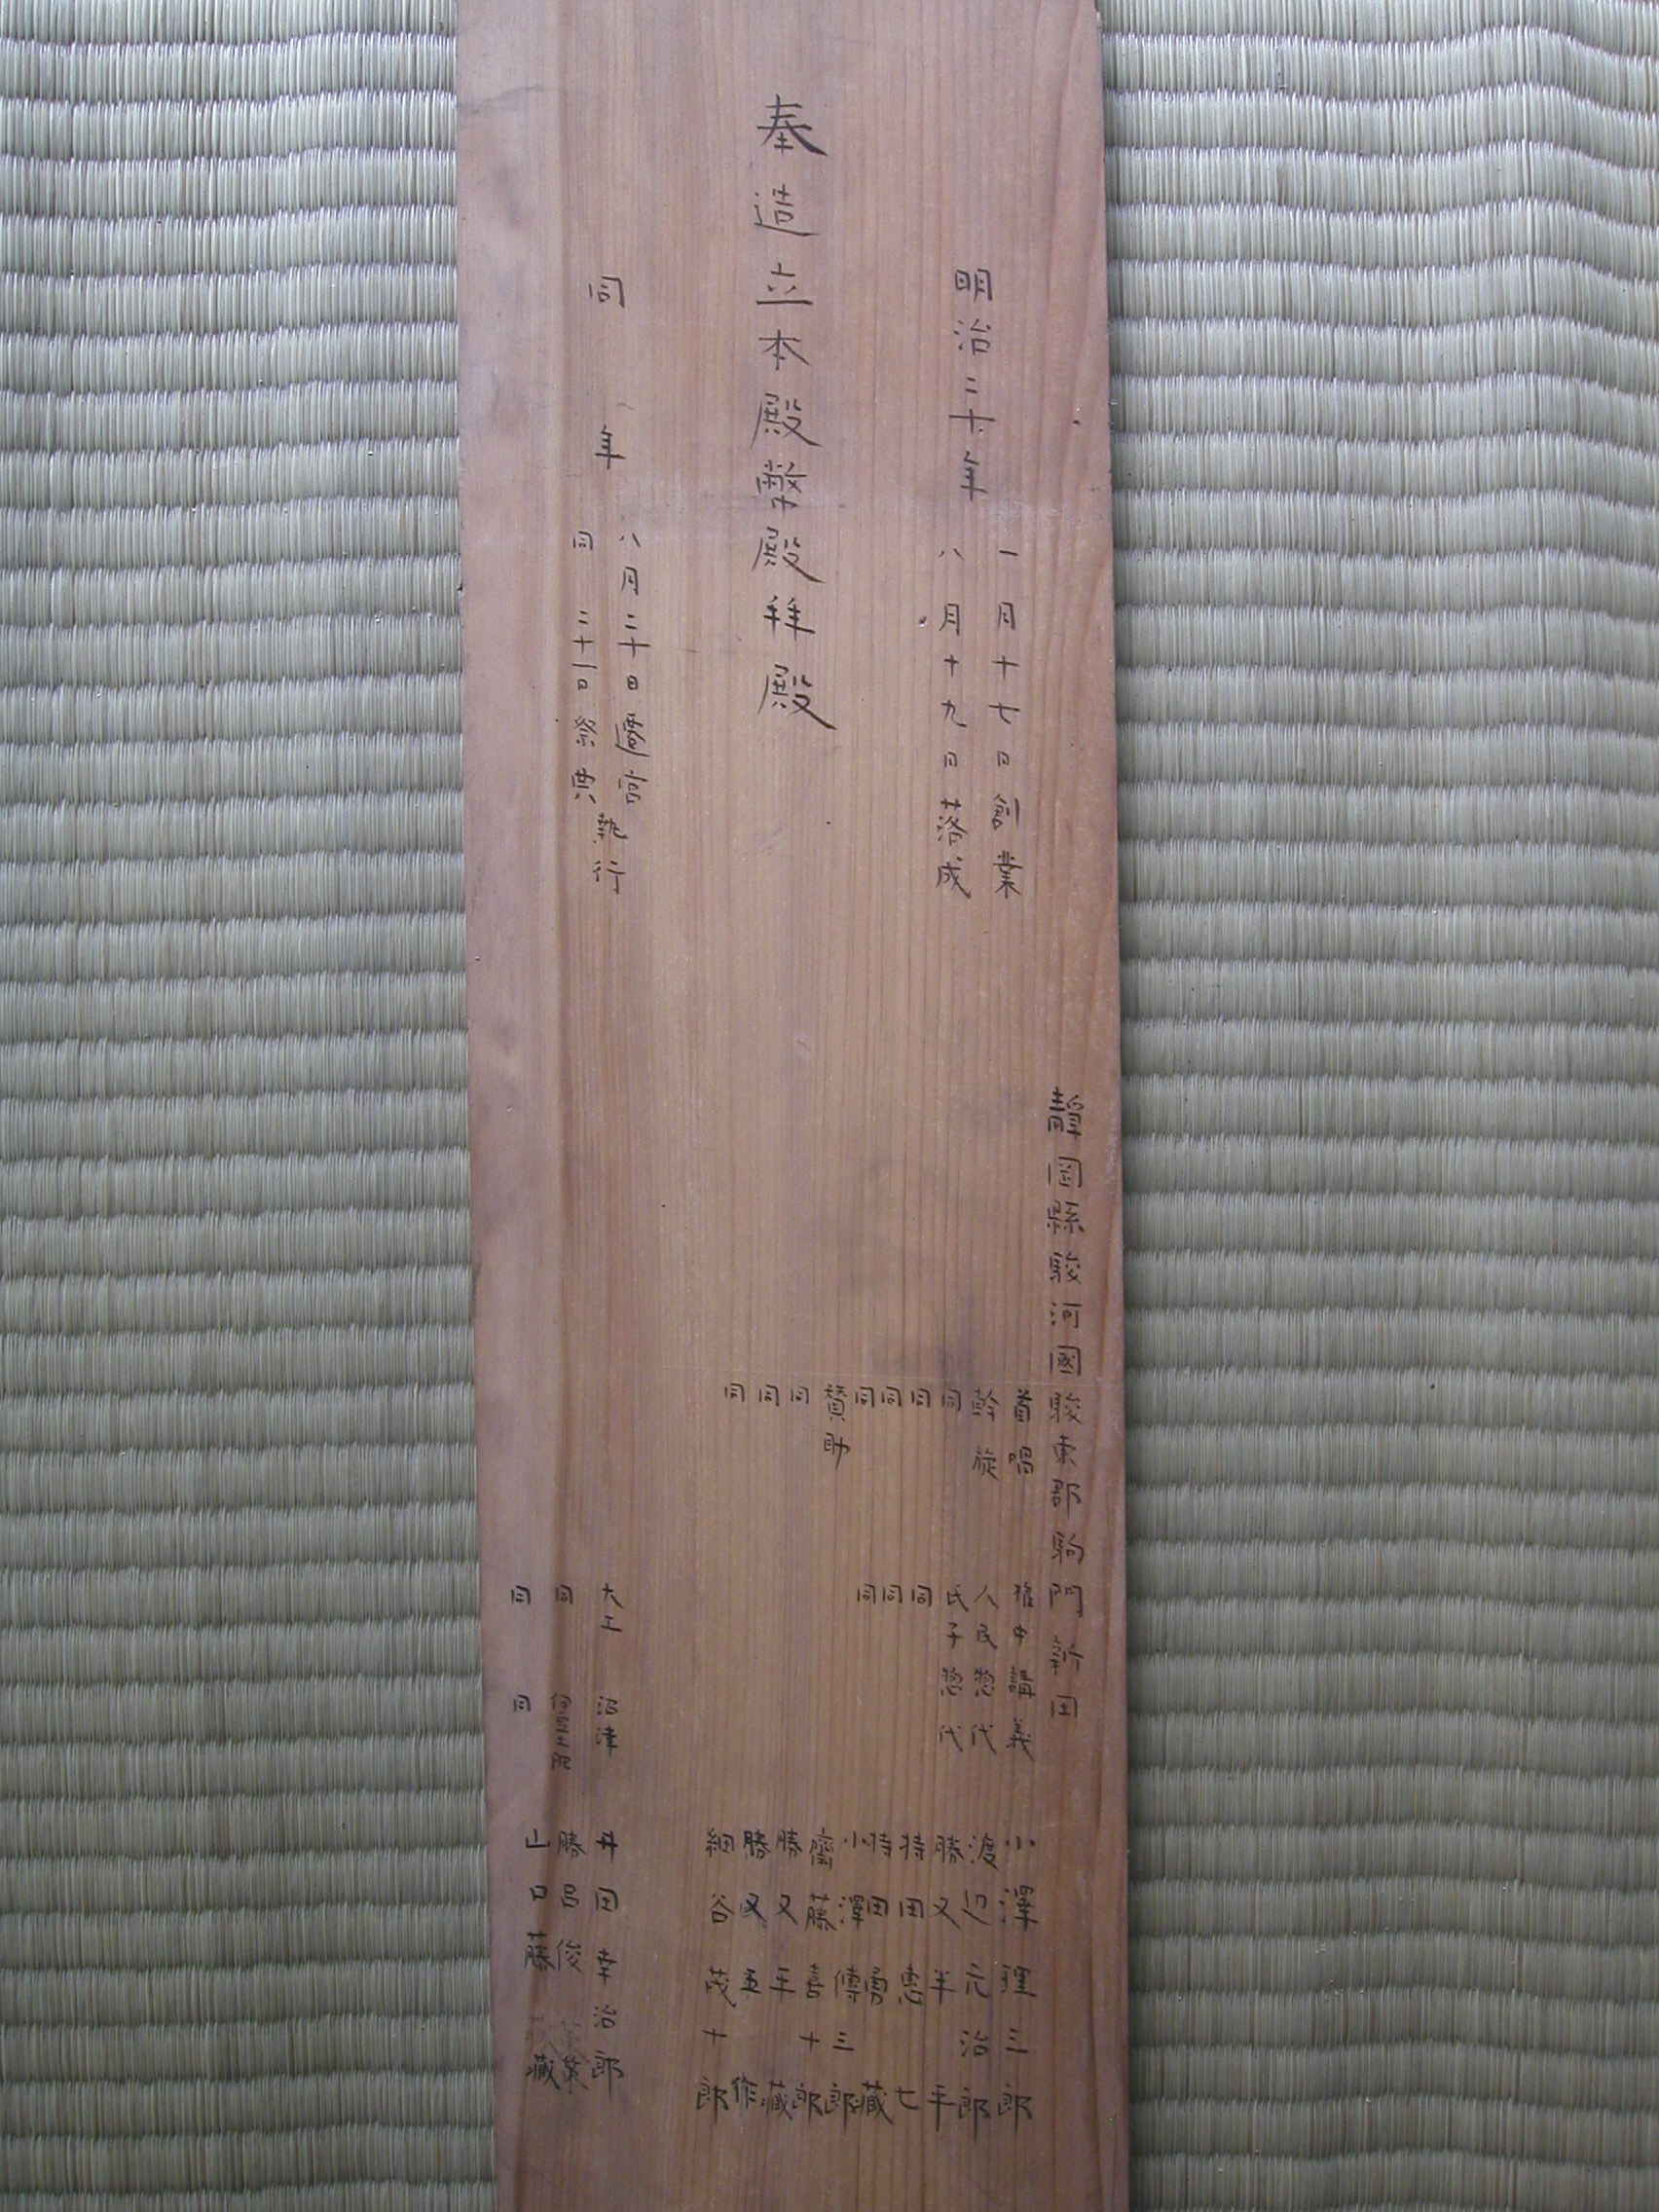 奉造立本殿幣殿拜殿
明治二十年
一月十七日創業
八月十九日落成
同年
八月二十日遷宮
同二十一日祭典
執行
靜岡縣駿河國駿東郡駒門新田
首唱 權中講義 小澤理三郎
斡旋 人民惣代 渡辺元治郎
同 氏子惣代 勝又半平
同 同 特田惠七
同 同 特田勇藏
同 同 小澤傳三郎
賛助 齋藤喜十郎
同 勝又平藏
同 勝又五作
同 細谷茂十郎
大工 沼津 井田幸治郎
同 勝呂俊
同 同 山口藤藏